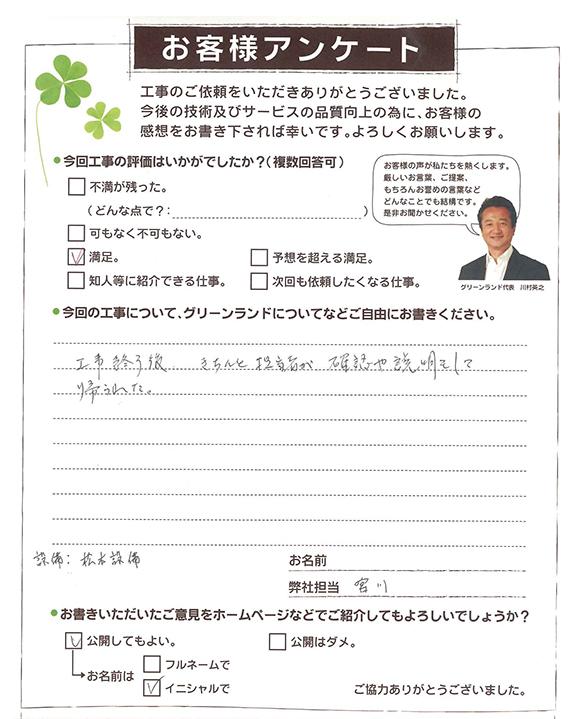 お客様アンケート
工事のご依頼をいただきありがとうございました。
今後の技術及びサービスの品質向上の為に、お客様の
感想をお書き下されば幸いです。よろしくお願いします。
●今回工事の評価はいかがでしたか?(複数回答可)
お客様の声が私たちを熱くします。
厳しいお言葉、ご提案、
もちろんお誉めの言葉など
どんなことでも結構です。
是非お聞かせください。
グリーンランド代表 川村英之
不満が残った。
(どんな点で?: )
可もなく不可もない。
満足。
予想を超える満足。
知人等に紹介できる仕事。
次回も依頼したくなる仕事。
●今回の工事について、グリーンランドについてなどご自由にお書きください。
工事終了後 きちんと担当者が確認や説明をして
帰られた。
設備: 松本設備
お名前
弊社担当 宮川
●お書きいただいたご意見をホームページなどでご紹介してもよろしいでしょうか?
公開してもよい。
公開はダメ。
お名前は
フルネームで
イニシャルで
ご協力ありがとうございました。